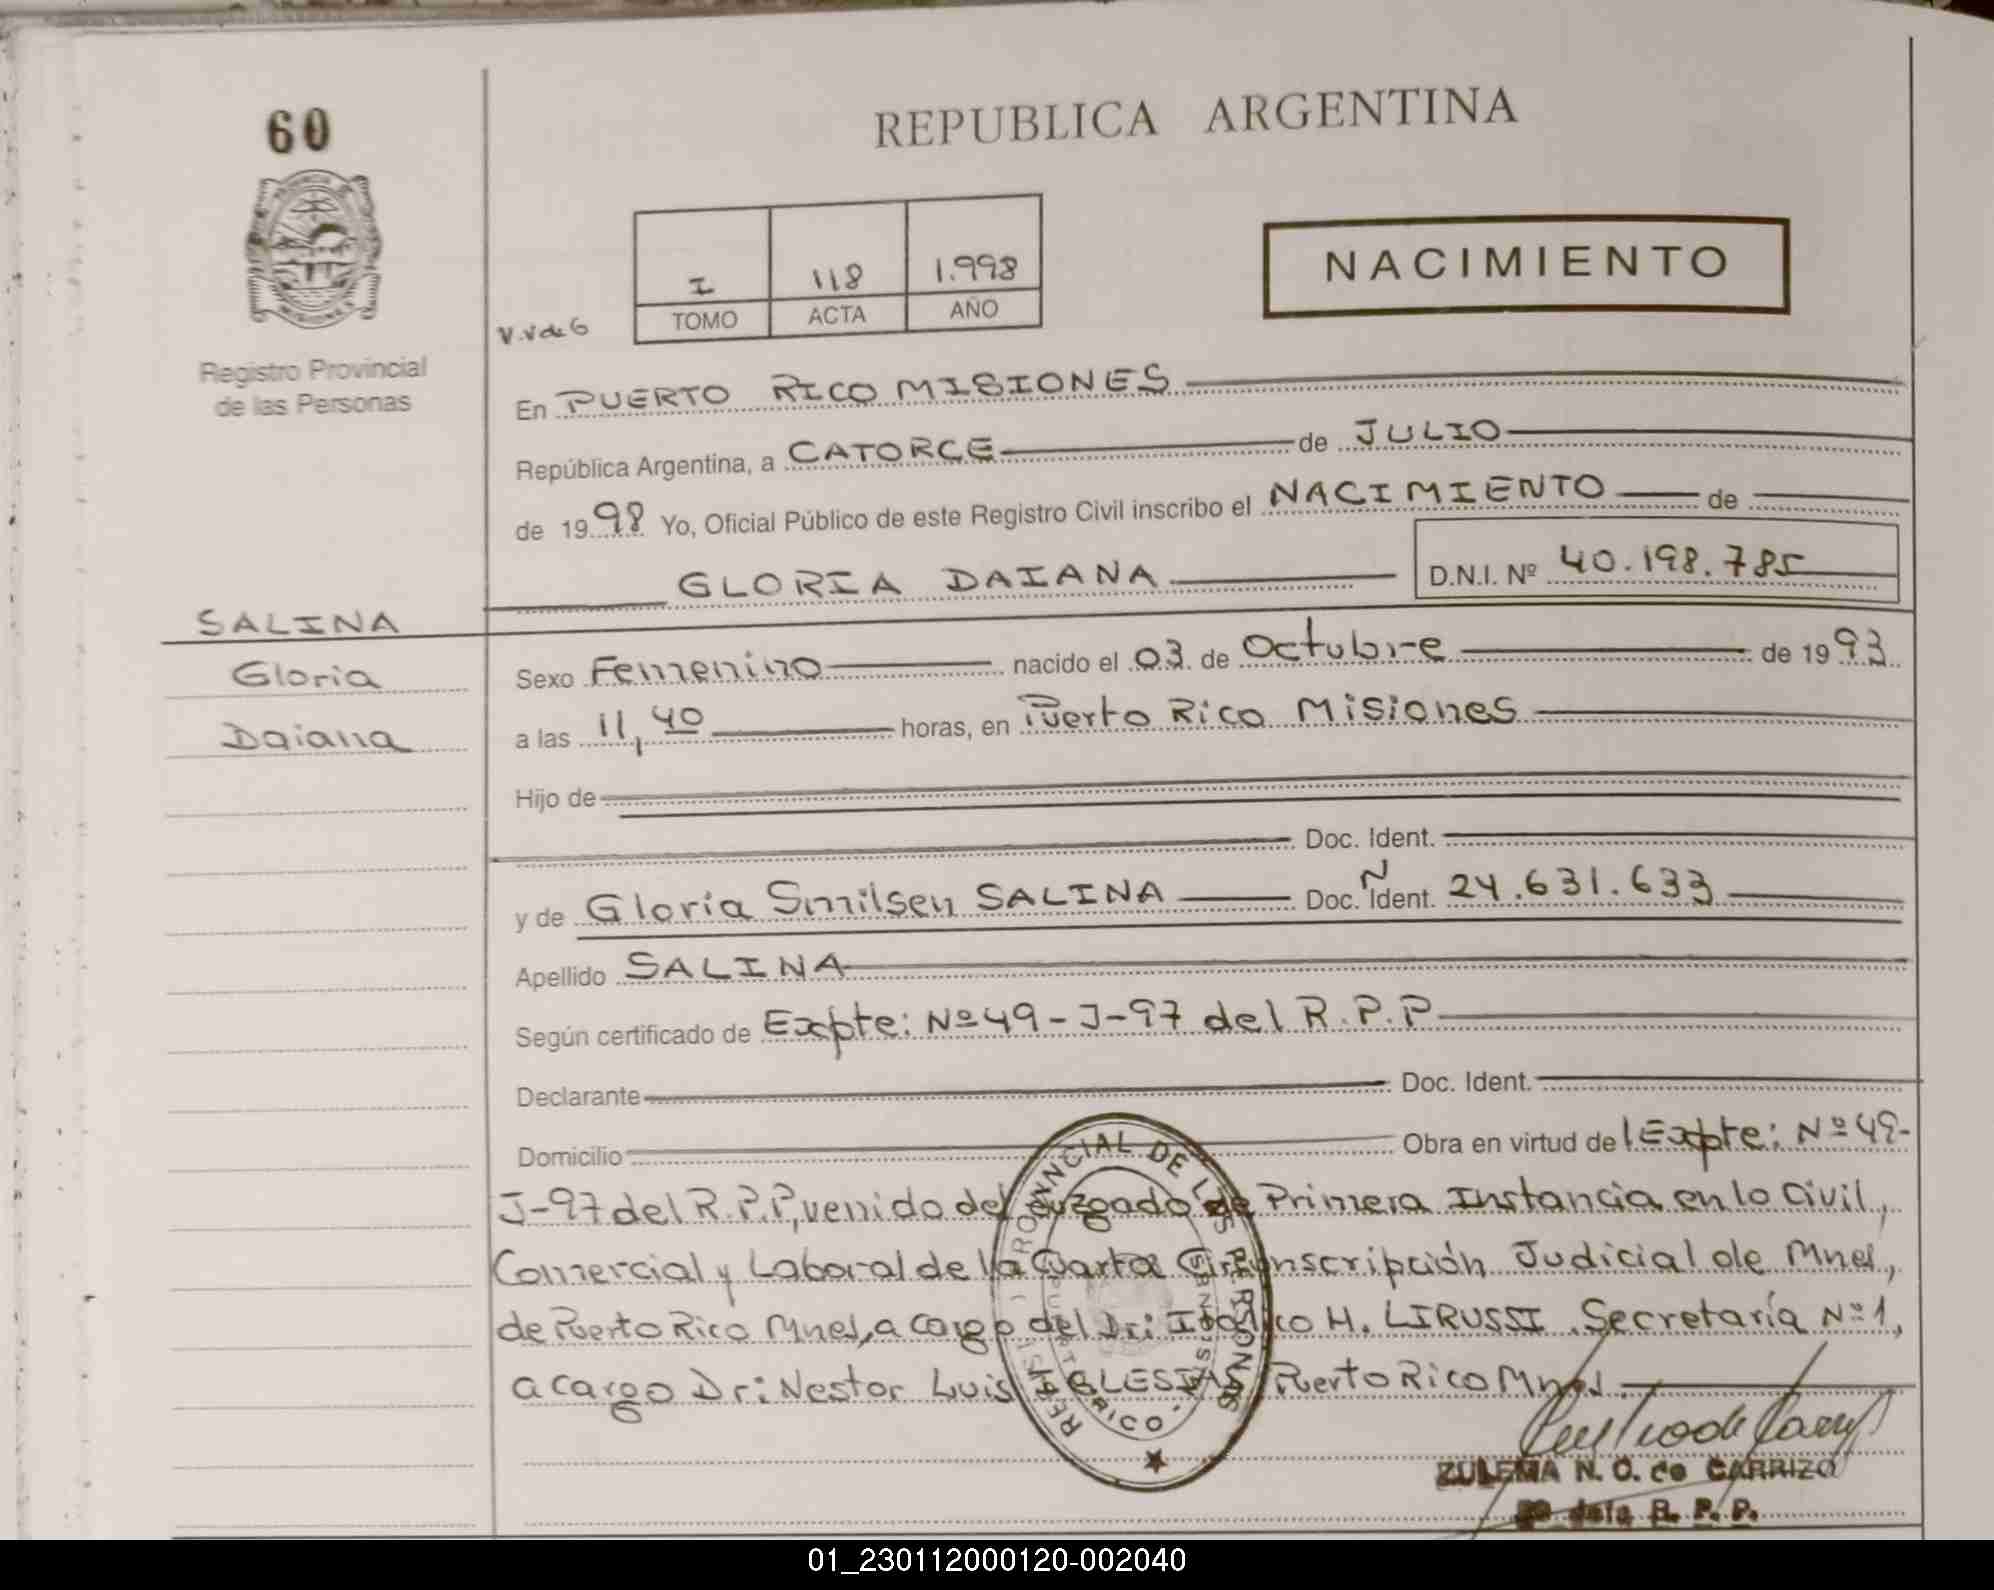 60
REPUBLICA ARGENTINA
I 118 1.998
TOMO ACTA AÑO
NACIMIENTO
V.V de G
Registro Provincial
de las Personas
En PUERTO RICO MISIONES
República Argentina, a CATORCE de JULIO
de 1998 Yo, Oficial Público de este Registro Civil inscribo el NACIMIENTO de
GLORIA DAIANA D.N.I. Nº 40.198.785
SALINA
Gloria
Daiana
Sexo Femenino nacido el 03 de Octubre de 1993
a las 11,40 horas, en Puerto Rico Misiones
Hijo de
Doc. Ident.
y de Gloria Smilsen SALINA Doc. Ident. N 24.631.633
Apellido SALINA
Según certificado de Expte: Nº 49-J-97 del R.P.P
Declarante Doc. Ident.
Domicilio Obra en virtud del Expte: Nº 49-
J-97 del R.P.P, venido del Juzgado de Primera Instancia en lo Civil,
Comercial y Laboral de la Cuarta Circunscripción Judicial de Mnes,
de Puerto Rico Mnes, a cargo del Dr: H. LIRUSSI. Secretaría Nº 1,
a cargo Dr: Nestor Luis IGLESIAS Puerto Rico Mnes.
REGISTRO PROVINCIAL DE LAS PERSONAS
PUERTO RICO MISIONES
ZULEMA N. O. de CARRIZO
R. P. P.
01_230112000120-002040